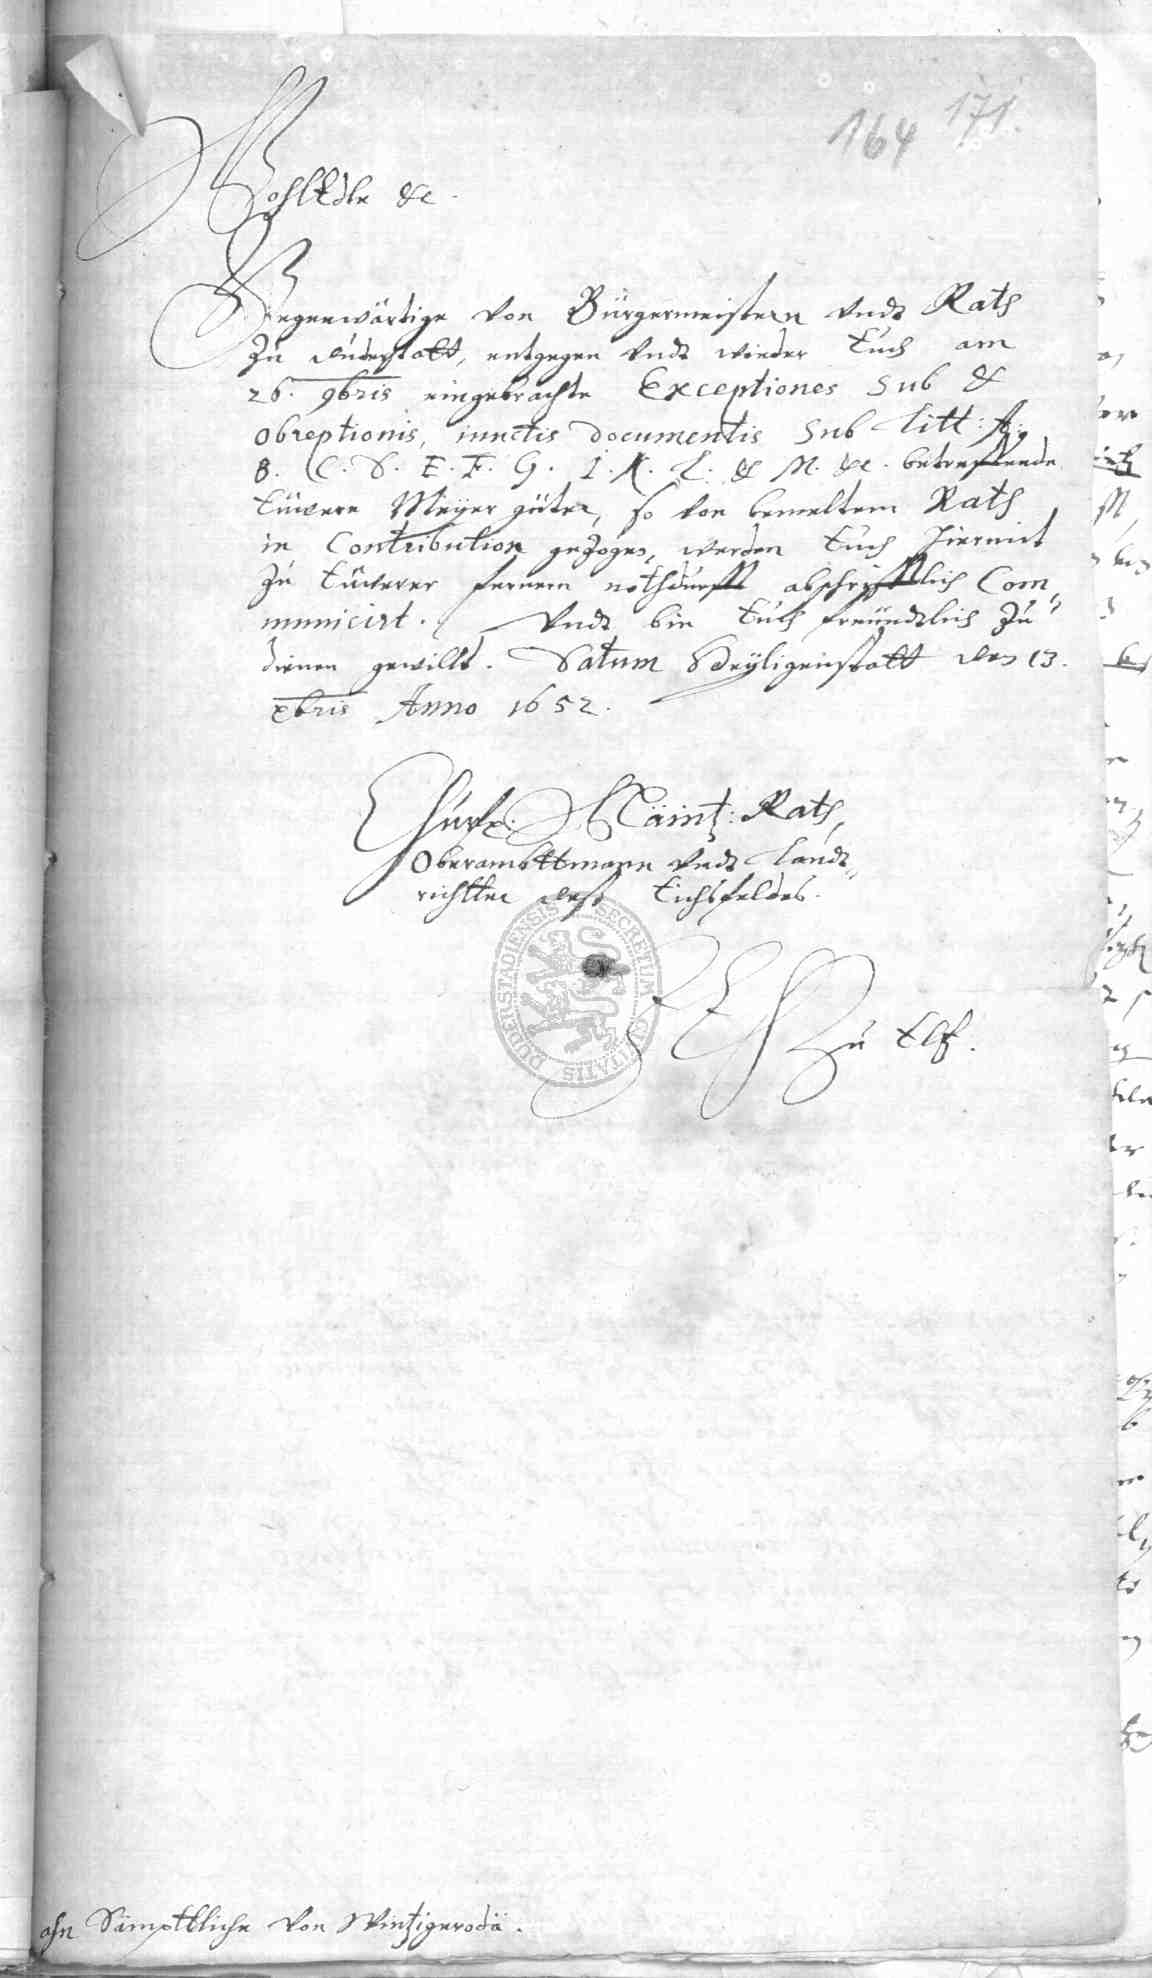 164 171.
WohlEdle &c.
Gegenwärtige von Bürgermeistern undt Rath
Zu Duderstatt, entgegen undt wieder Euch am
26. 9bris eingebrachte Exceptiones Sub &
obreptionis, iunctis documentis Sub litt: A.
B. C. D. E. F. G. I. K. L. & M. &c. betreffende
Euwere Meyer güter, so von bemeltem Rath
in Contribution gezogen, werden Euch hiermit
zu Euwerer fernern nothdurfft abschrifftlich Com,,
municirt. Undt bin Euch freundtlich Zu
dienen gewillt. Datum Heyligenstatt den 13.
xbris Anno 1652.
Churf. Mäintz: Rath,
Oberambttmann undt Landt,,
richtter deß Eichsfeldes.
zu Eltz.
SECRETUM CIVITATIS DUDERSTADIENSIS
ahn Sämpttliche von Wintzigeroda.